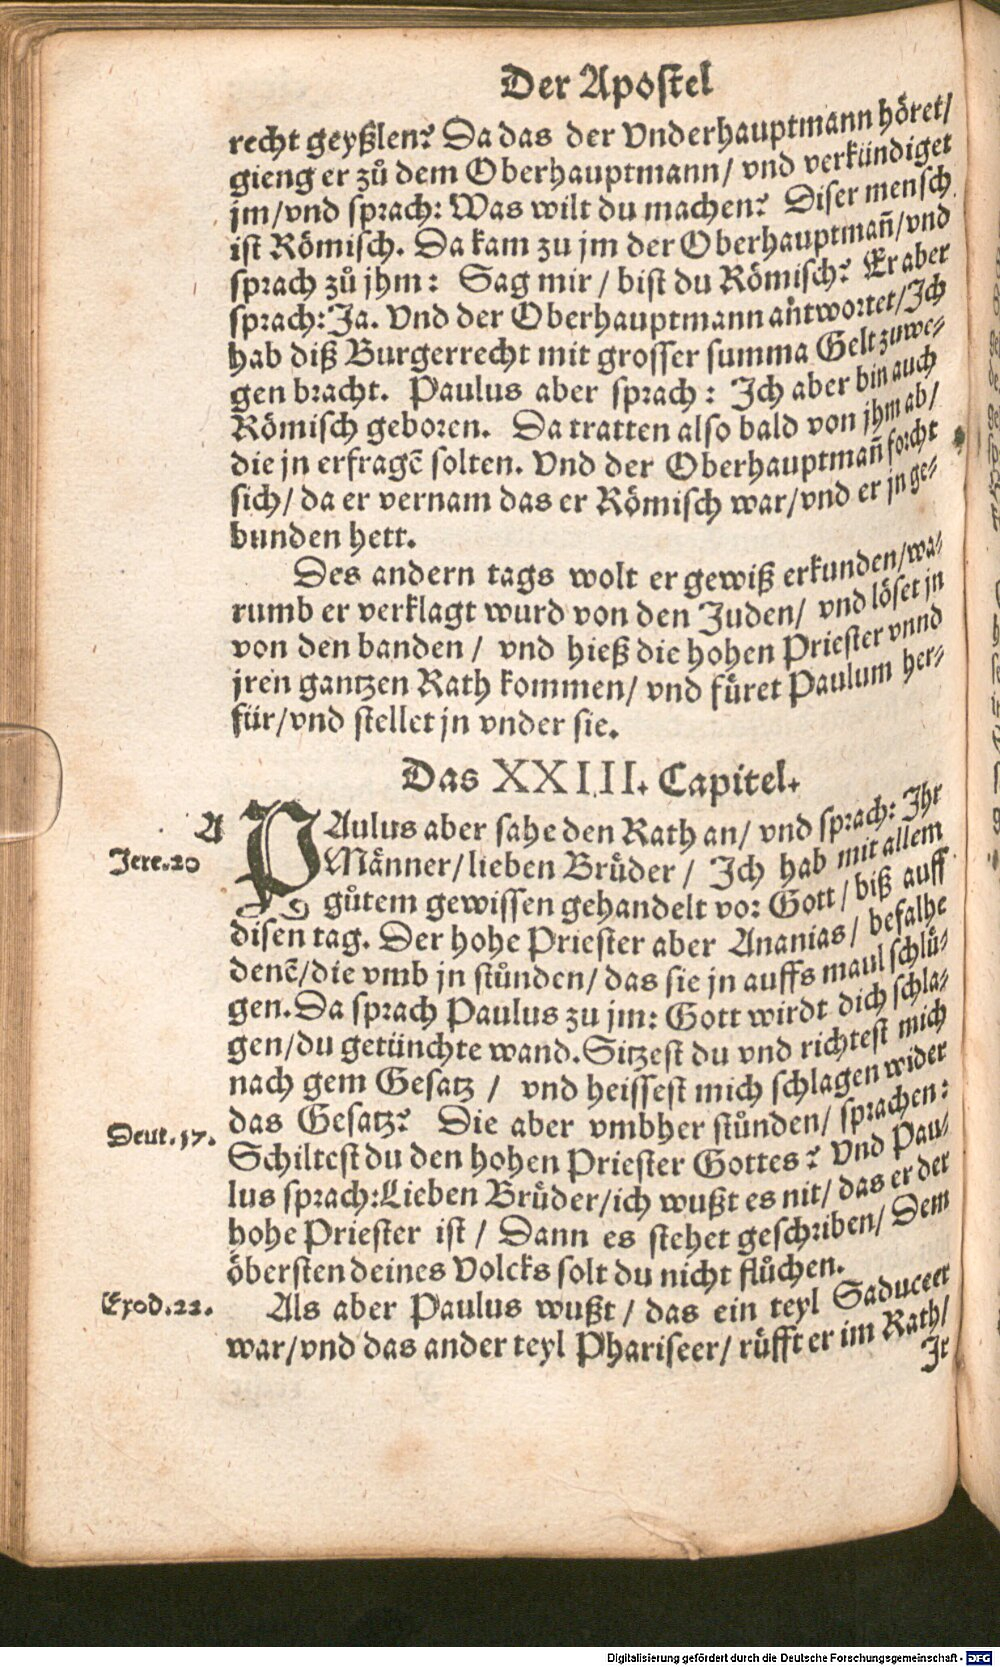 Der Apostel
recht geyßlen? Da das der Vnderhauptmann höret/
gieng er zů dem Oberhauptmann/ vnd verkündiget
jm/vnd sprach: Was wilt du machen? Diser mensch
ist Römisch. Da kam zu jm der Oberhauptmañ/vnd
sprach zů jhm: Sag mir / bist du Römisch? Er aber
sprach: Ja. Vnd der Oberhauptmann antwortet/Ich
hab diß Burgerrecht mit grosser summa Gelt zuwe-
gen bracht. Paulus aber sprach: Ich aber bin auch
Römisch geboren. Da tratten also bald von jhm ab/
die jn erfragẽ solten. Vnd der Oberhauptmañ forcht
sich/ da er vernam das er Römisch war/vnd er jn ge-
bunden hett.
Des andern tags wolt er gewiß erkunden/wa-
rumb er verklagt wurd von den Juden/ vnd löset jn
von den banden / vnd hieß die hohen Priester vnnd
jren gantzen Rath kommen/ vnd fůret Paulum her-
für/vnd stellet jn vnder sie.
Das XXIII. Capitel.
A
PAulus aber sahe den Rath an/ vnd sprach: Ihr
Jere.20
Männer/lieben Brůder / Ich hab mit allem
gůtem gewissen gehandelt vor Gott / biß auff
disen tag. Der hohe Priester aber Ananias / befalhe
denẽ/die vmb jn stůnden/ das sie jn auffs maul schlů-
gen. Da sprach Paulus zu jm: Gott wirdt dich schla-
gen/du getünchte wand. Sitzest du vnd richtest mich
nach gem Gesatz / vnd heissest mich schlagen wider
das Gesatz? Die aber vmbher stůnden/ sprachen:
Deut.17.
Schiltest du den hohen Priester Gottes? Vnd Pau-
lus sprach:Lieben Brůder/ich wußt es nit/ das er der
hohe Priester ist / Dann es stehet geschriben/ Dem
öbersten deines Volcks solt du nicht flůchen.
Exod.22.
Als aber Paulus wußt / das ein teyl Saduceer
war/vnd das ander teyl Phariseer/ růfft er im Rath/
Ir
Digitalisierung gefördert durch die Deutsche Forschungsgemeinschaft - DFG